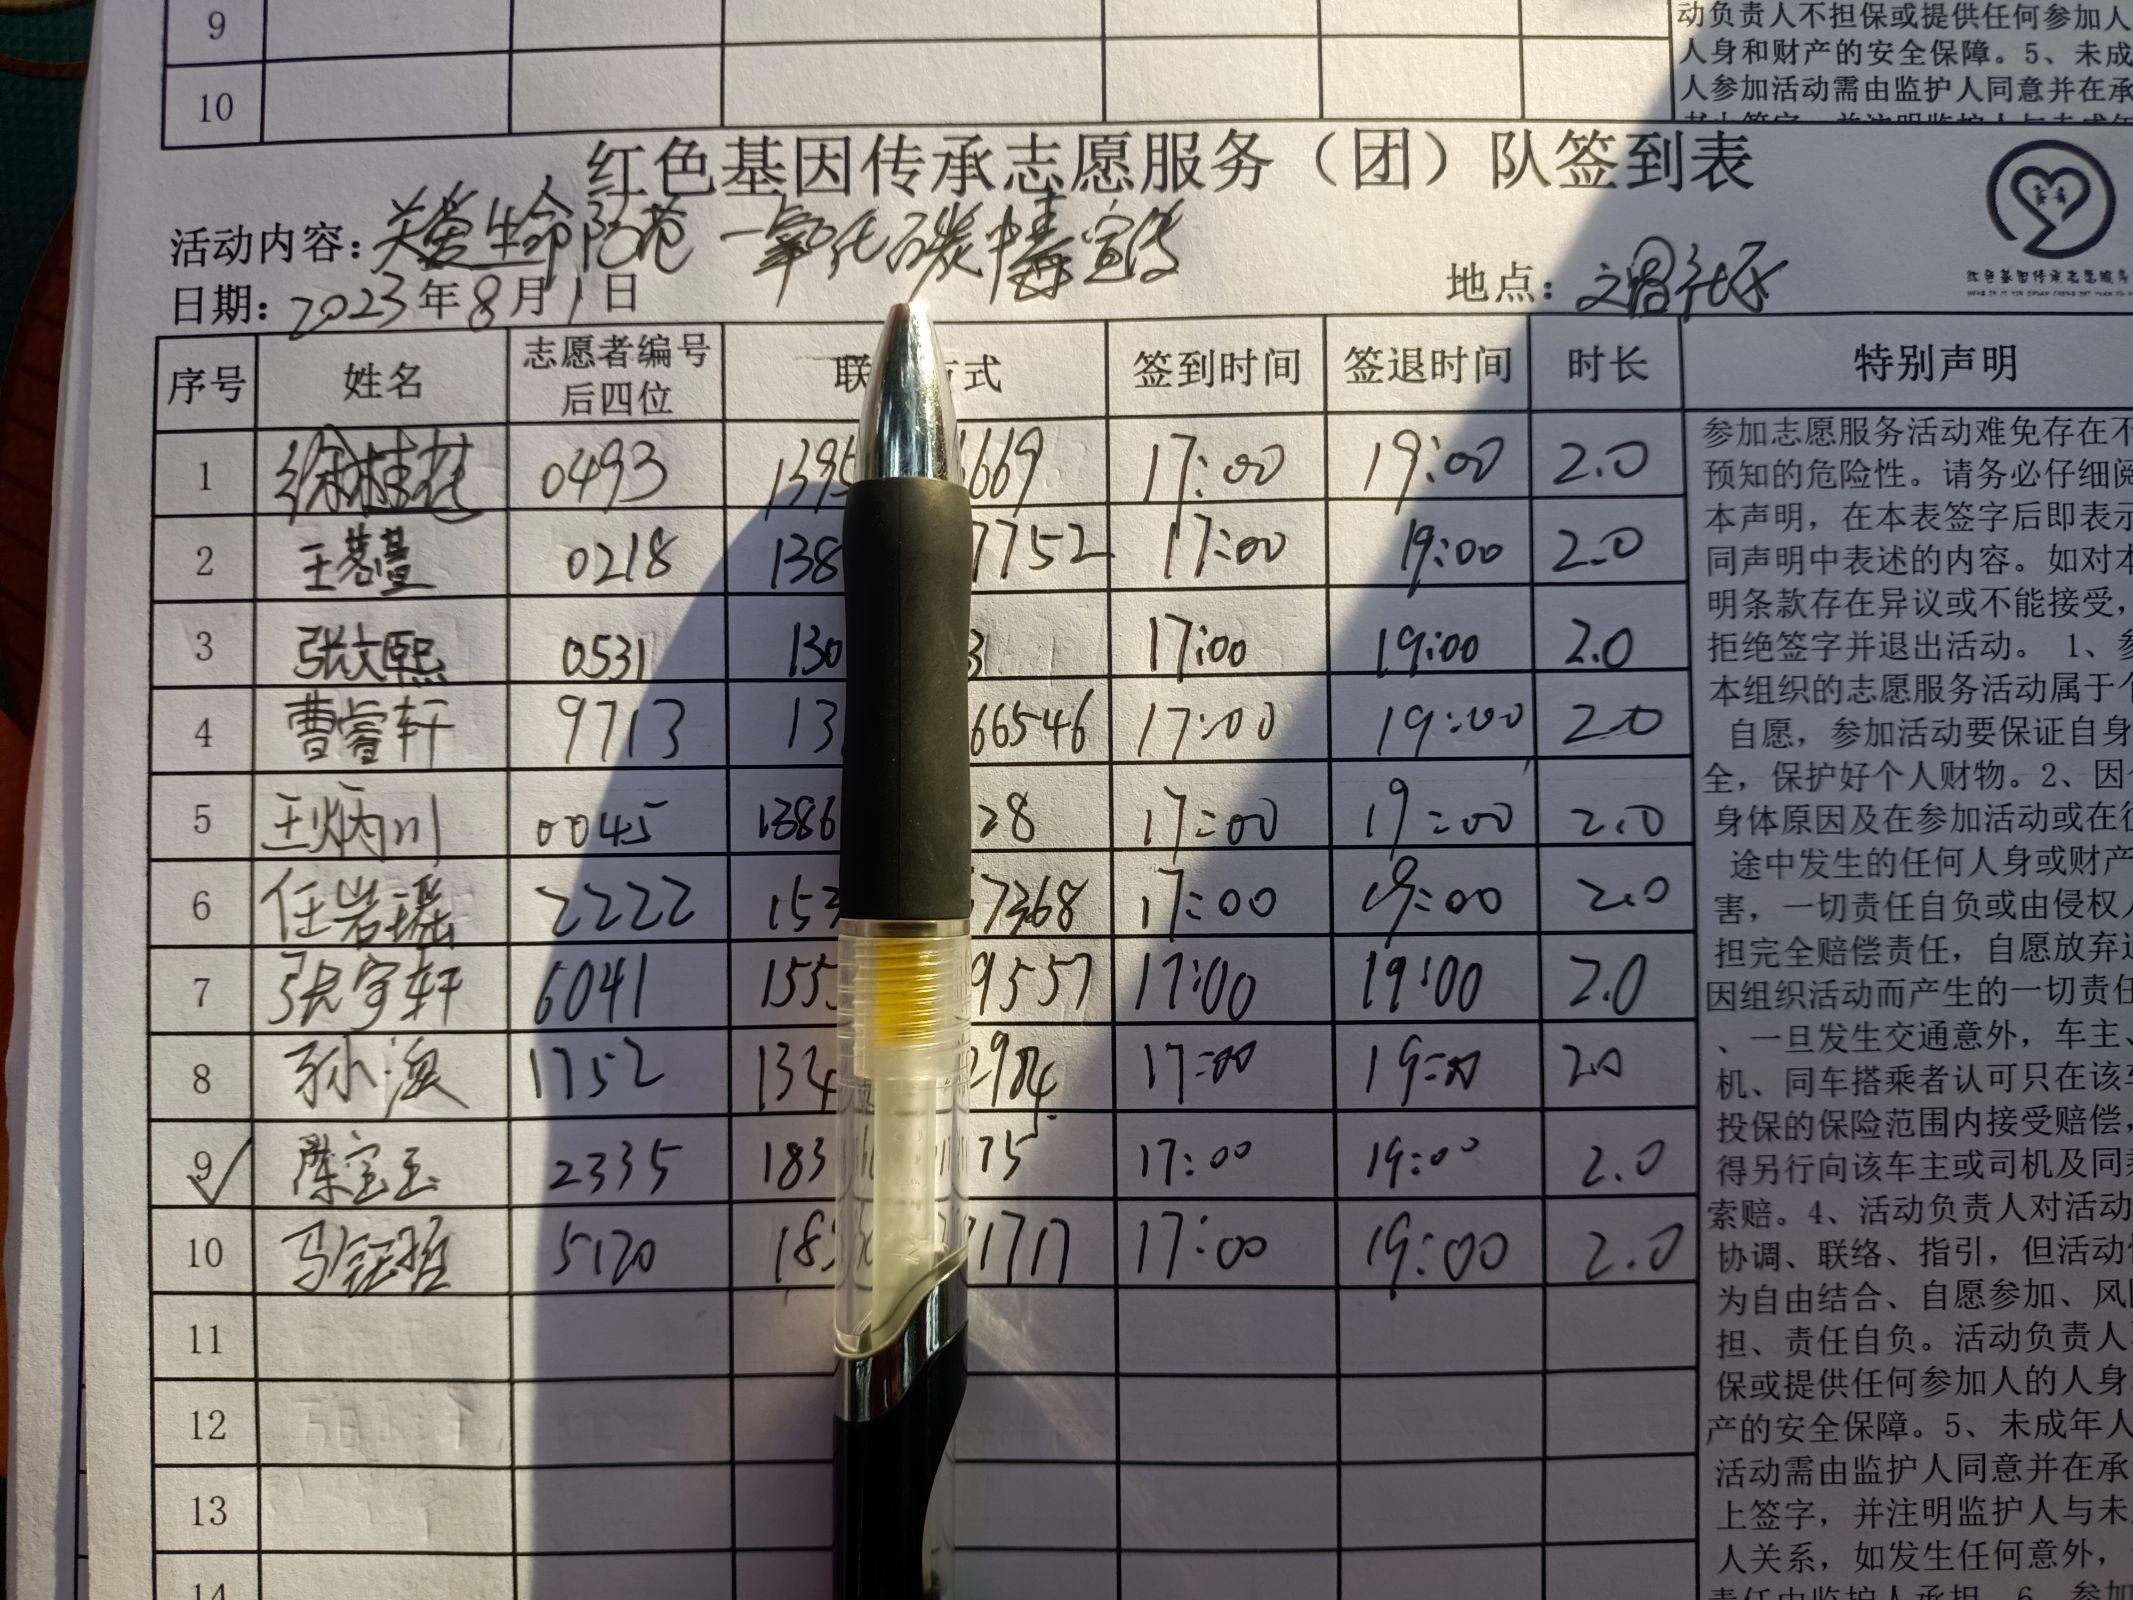 9
动负责人不担保或提供任何参加人
人身和财产的安全保障。5、未成
10
人参加活动需由监护人同意并在承
红色基因传承志愿服务（团）队签到表
活动内容：关爱生命 防范一氧化碳中毒宣传
日期：2023年8月1日
地点：文昌社区
红色基因传承志愿服务
序号 姓名 志愿者编号后四位 联 方式 签到时间 签退时间 时长 特别声明
1 徐桂花 0493 1395 669 17:00 19:00 2.0
2 王茗萱 0218 138 7752 17:00 19:00 2.0
3 张文熙 0531 130 3 17:00 19:00 2.0
4 曹睿轩 9713 13 66546 17:00 19:00 2.0
5 王炳川 0045 1386 28 17:00 19:00 2.0
6 任岩瑶 2222 153 7368 17:00 19:00 2.0
7 张宇轩 6041 155 9557 17:00 19:00 2.0
8 孙 1752 134 17:00 19:00 2.0
9 陈宝玉 2335 183 75 17:00 19:00 2.0
10 马钰哲 5120 18 1717 17:00 19:00 2.0
11
12
13
14
参加志愿服务活动难免存在不
预知的危险性。请务必仔细阅
本声明，在本表签字后即表示
同声明中表述的内容。如对本
明条款存在异议或不能接受，
拒绝签字并退出活动。 1、参
本组织的志愿服务活动属于个
自愿，参加活动要保证自身
全，保护好个人财物。2、因个
身体原因及在参加活动或在往
途中发生的任何人身或财产
害，一切责任自负或由侵权人
担完全赔偿责任，自愿放弃追
因组织活动而产生的一切责任
、一旦发生交通意外，车主、
机、同车搭乘者认可只在该车
投保的保险范围内接受赔偿，
得另行向该车主或司机及同乘
索赔。4、活动负责人对活动
协调、联络、指引，但活动
为自由结合、自愿参加、风
担、责任自负。活动负责人
保或提供任何参加人的人身
产的安全保障。5、未成年人
活动需由监护人同意并在承
上签字，并注明监护人与未
人关系，如发生任何意外，
责任由监护人承担。6、参加